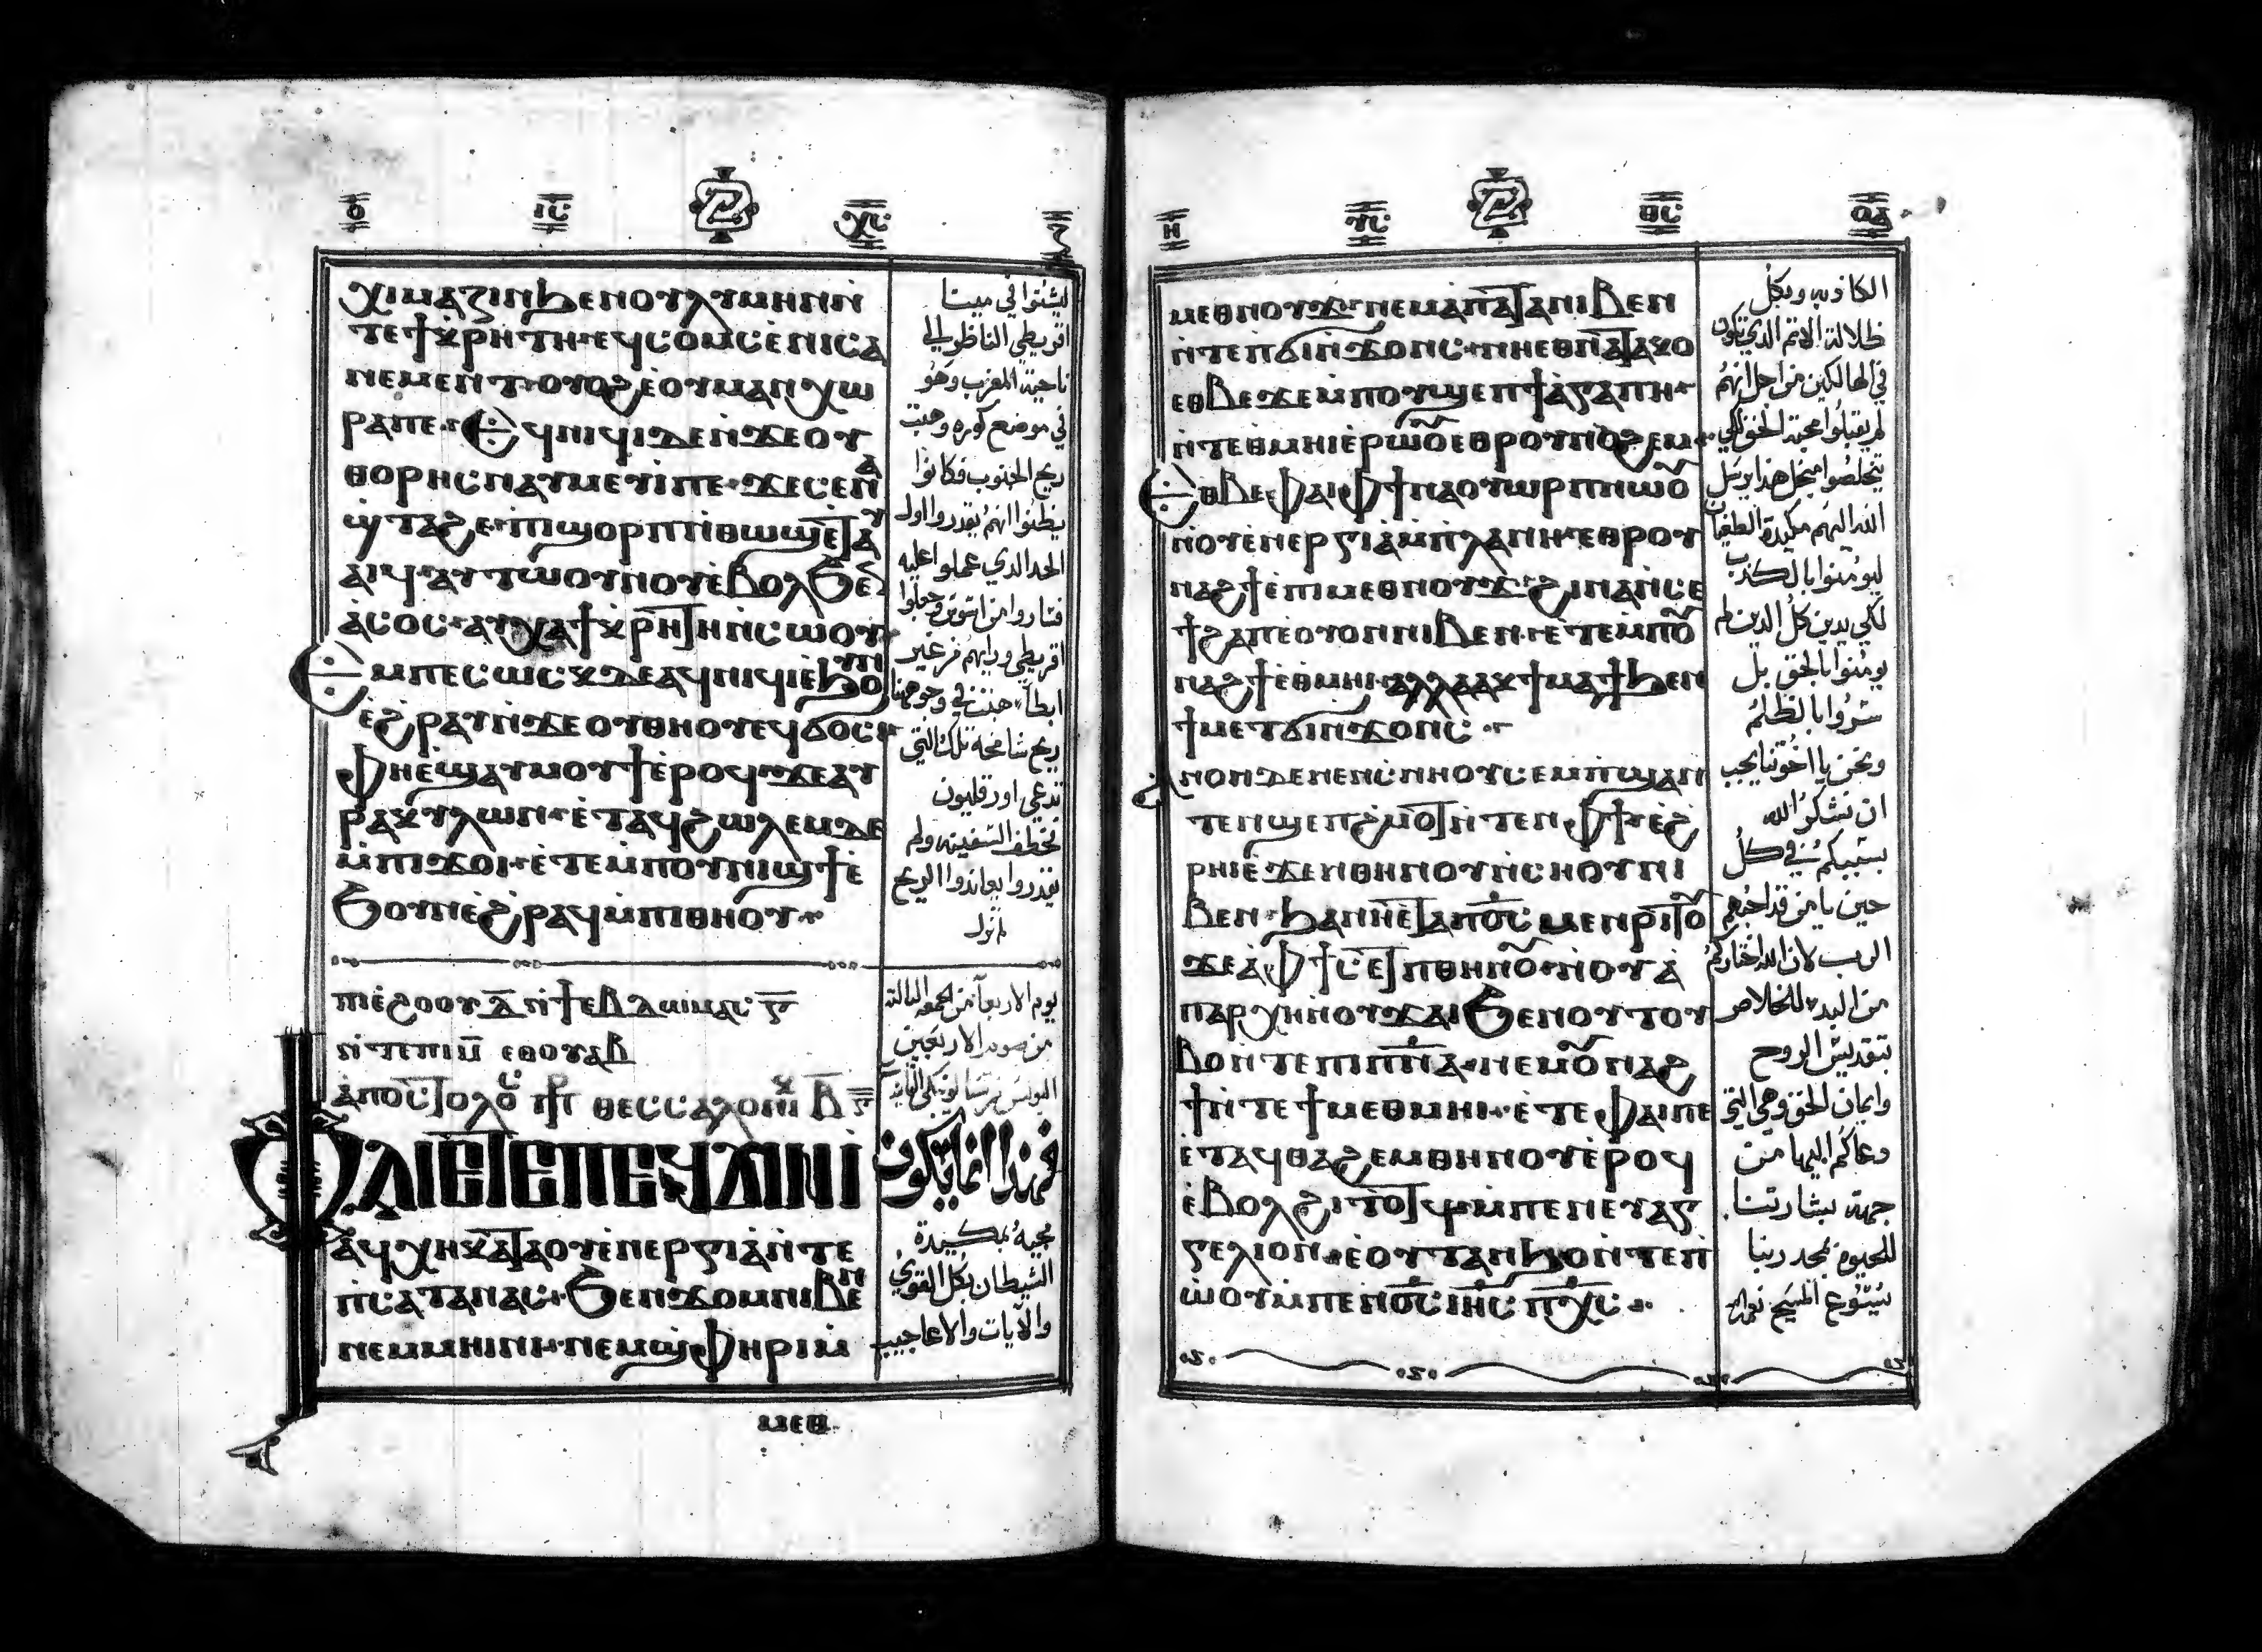 ⲟ ⲓⲥ ⲭⲥ ⲍ
ⲭⲓⲙⲁⲍⲓⲛϧⲉⲛⲟⲩⲗⲩⲙⲏⲛⲛ̀
ⲧⲉϯⲭⲣⲏⲧⲏ·ⲉϥⲥⲟⲙⲥⲉ̀ⲛⲓⲥⲁ
ⲛⲉⲙⲉⲛⲧ·ⲟⲩⲟϩⲉ̀ⲟⲩⲙⲁⲛ̀ⲭⲱ
ⲣⲁⲡⲉ· ⲉϥⲛⲓϥⲓⲇⲉⲛ̀ϫⲉⲟⲩ
ⲑⲟⲣⲏⲥⲛⲁⲩⲙⲉⲩⲓⲡⲉ·ϫⲉⲥⲉⲛⲁ
ϣ̀ⲧⲁϩⲉ·ⲡⲓϣⲟⲣⲡⲧⲓⲑⲱϣⲉ̀ⲧⲁⲩ
ⲁⲓϥ·ⲁⲩⲧⲱⲟⲩⲛⲟⲩⲉ̀ⲃⲟⲗϧⲉⲛ
ⲁⲥⲟⲥ·ⲁⲩⲭⲁϯⲭⲣⲏⲧⲏⲛ̀ⲥⲱⲟⲩ
ⲉⲙⲡⲉⲥⲱⲥⲕⲇⲉⲁϥⲛⲓϥⲓⲉ̀ϧⲟⲩⲛ
ⲉ̀ϩⲣⲁⲩⲛ̀ϫⲉⲟⲩⲑⲏⲟⲩⲉϥϭⲟⲥⲓ
ⲫⲏⲉ̀ϣⲁⲩⲙⲟⲩϯⲉ̀ⲣⲟϥ·ϫⲉⲁⲩ
ⲣⲁⲕⲩⲗⲱⲛ·ⲉ̀ⲧⲁϥϩⲱⲗⲉⲙⲇⲉ
ⲙ̀ⲡⲓϫⲟⲓ·ⲉ̀ⲧⲉⲙ̀ⲡⲟⲩⲛⲓϣϯⲉ̀
ϯⲟⲩⲛⲉ̀ϩⲣⲁϥⲙ̀ⲡⲓⲑⲏⲟⲩ
ليشتوا في مينا
اقريطي الناظر الي
ناحية المغرب وهو
في موضع كوره وهبت
ريح الجنوب فكانوا
يظنوا انهم يقدروا اول
الحد الدي عملوا عليه
ريح شامخة تلك التي
تدعي اورقليون
تخطف السفينه ولم
يقدروا يعاندوا الريح
ⲡⲓⲉ̀ϩⲟⲟⲩ ⲇ̅ ⲛ̀ϯⲉⲃⲇⲱⲙⲁⲥ ⲅ̅
ⲛ̀ⲧⲉⲡⲓⲙ̅ ⲉⲑⲟⲩⲁⲃ
ⲁ̀ⲡⲟⲥⲧⲟⲗⲟⲥ ⲡⲣ ⲑⲉⲥⲥⲁⲗⲟⲛⲓⲕ ⲃ̅
يوم الاربعا من الجمعه التالته
من صوم الاربعين
ⲫⲁⲓⲉ̀ⲧⲉⲡⲉϥϫⲓⲛⲓ̀
ⲁϥⲭⲏⲕⲁⲧⲁⲟⲩⲉ̀ⲛⲉⲣⲅⲓⲁⲛ̀ⲧⲉ
ⲡ̀ⲥⲁⲧⲁⲛⲁⲥ·ϧⲉⲛϫⲟⲙⲛⲓⲃⲉⲛ
ⲛⲉⲙⲙⲏⲓⲛⲓ·ⲛⲉⲙϣ̀ⲫⲏⲣⲓⲙ̀
فهذا انما يكون
مجيه بمكيدة
الشيطان بكل القوي
والآيات والاعاجيب
ⲙⲉⲑ
ⲏ ⲩⲥ ⲑⲥ ⲟⲁ
ⲙⲉⲑⲛⲟⲩϫ·ⲛⲉⲙⲁⲡⲁⲧⲁⲛⲓⲃⲉⲛ
ⲛ̀ⲧⲉⲡϭⲓⲛ̀ϫⲟⲛⲥ·ⲛⲏⲉⲑⲛⲁⲧⲁⲕⲟ
ⲉⲑⲃⲉϫⲉⲙ̀ⲡⲟⲩϣⲉⲡϯⲁ̀ⲅⲁⲡⲏ
ⲛ̀ⲧⲉⲑⲙⲏⲓⲉ̀ⲣⲱⲟⲩⲉⲑⲣⲟⲩⲛⲟϩⲉⲙ
ⲉⲑⲃⲉⲫⲁⲓⲫϯⲛⲁⲟⲩⲱⲣⲡⲛⲱⲟⲩ
ⲛ̀ⲟⲩⲉ̀ⲛⲉⲣⲅⲓⲁⲙ̀ⲡⲗⲁⲛⲏ·ⲉⲑⲣⲟⲩ
ⲛⲁϩϯⲉ̀ⲡⲓⲙⲉⲑⲛⲟⲩϫ·ϩⲓⲛⲁⲛ̀ⲥⲉ
ϯϩⲁⲡⲉⲟⲩⲟⲛⲛⲓⲃⲉⲛ·ⲉ̀ⲧⲉⲙ̀ⲡⲟⲩ
ⲛⲁϩϯⲉ̀ⲑⲙⲏⲓ·ⲁⲗⲗⲁⲁⲩϯⲙⲁϯϧⲉⲛ
ϯⲙⲉⲧϭⲓⲛ̀ϫⲟⲛⲥ
ⲁⲛⲟⲛⲇⲉⲛⲉⲛⲥⲛⲏⲟⲩⲥⲉⲙ̀ⲡϣⲁⲛ̀
ⲧⲉⲛϣⲉⲡϩⲙⲟⲧⲛ̀ⲧⲉⲛⲫϯ·ⲉ̀ϩ
ⲣⲏⲓⲉ̀ϫⲉⲛⲑⲏⲛⲟⲩⲛ̀ⲥⲏⲟⲩⲛⲓ
ⲃⲉⲛ·ϧⲁⲛⲏⲉ̀ⲧⲁⲡⲟ̅ⲥ̅ⲙⲉⲛⲣⲓⲧⲟⲩ
ϫⲉⲁ̀ⲫϯⲥⲉⲧⲡⲑⲏⲛⲟⲩ·ⲛ̀ⲟⲩⲁ
ⲡⲁⲣⲭⲏⲛⲟⲩϫⲁⲓϧⲉⲛⲟⲩⲧⲟⲩ
ⲃⲟⲛ̀ⲧⲉⲡⲓⲡ̅ⲛ̅ⲁ̅·ⲛⲉⲙⲟⲩⲛⲁϩ
ϯⲛ̀ⲧⲉϯⲙⲉⲑⲙⲏⲓ·ⲉ̀ⲧⲉⲫⲁⲓⲡⲉ
ⲉ̀ⲧⲁϥⲑⲁϩⲉⲙⲑⲏⲛⲟⲩⲉ̀ⲣⲟϥ
ⲉ̀ⲃⲟⲗϩⲓⲧⲟⲧϥⲙ̀ⲡⲉⲛⲉⲩⲁⲅ
ⲅⲉⲗⲓⲟⲛ·ⲉⲟⲩⲧⲁⲛϧⲟⲛ̀ⲧⲉⲡ̀
ⲱ̀ⲟⲩⲙ̀ⲡⲉⲛⲟ̅ⲥ̅ⲓⲏ̅ⲥ̅ⲡ̅ⲭ̅ⲥ̅
الكاذبه وبكل
ظلالة الاتم الدي تكون
في الهالكين من اجل انهم
لم يقبلوا محبة الحق لكي
يخلصوا من اجل هذا يرسل
الله اليهم مكيدة الطغيان
ليومنوا بالكذب
لكي يدين كل الدين لم
يومنوا بالحق بل
سروا بالظلم
ونحن يا اخوتنا يجب
ان نشكر الله
بسببكم في كل
حين يا من قد احبهم
الرب لان الله اختاركم
من البدء للخلاص
بتقديس الروح
وايمان الحق وهي التي
دعاكم اليها من
جهة بشارتنا
للحيوه لمجد ربنا
يسوع المسيح